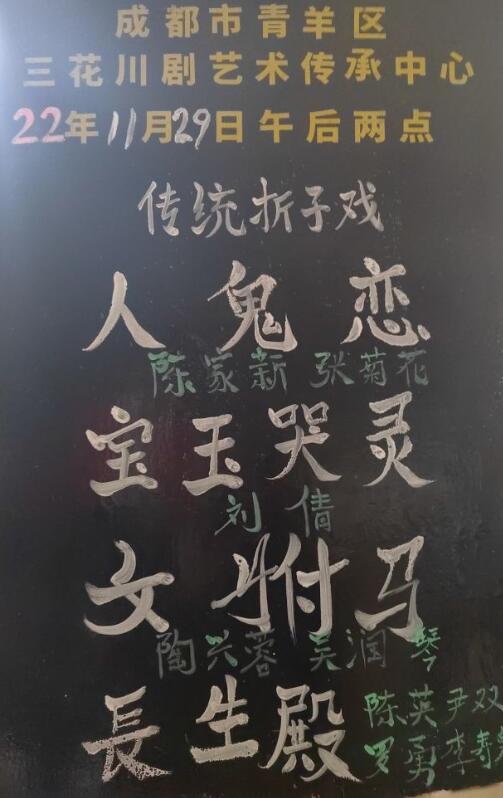 成都市青羊区
三花川剧艺术传承中心
22年11月29日午后两点
传统折子戏
人鬼恋
陈家新 张菊花
宝玉哭灵
刘倩
女附马
陶兴蓉 吴润琴
長生殿
陈英尹双
罗勇李寿